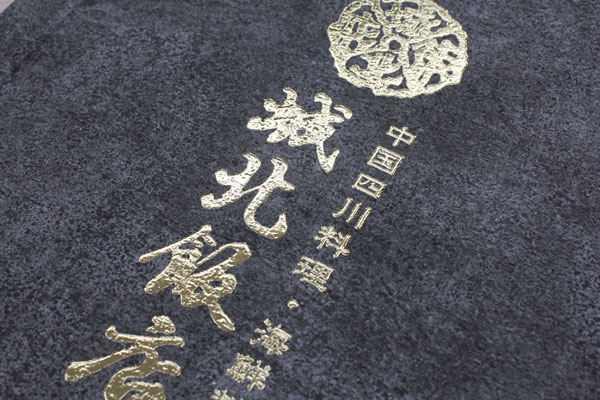 中国四川料理・海鮮
城北飯店